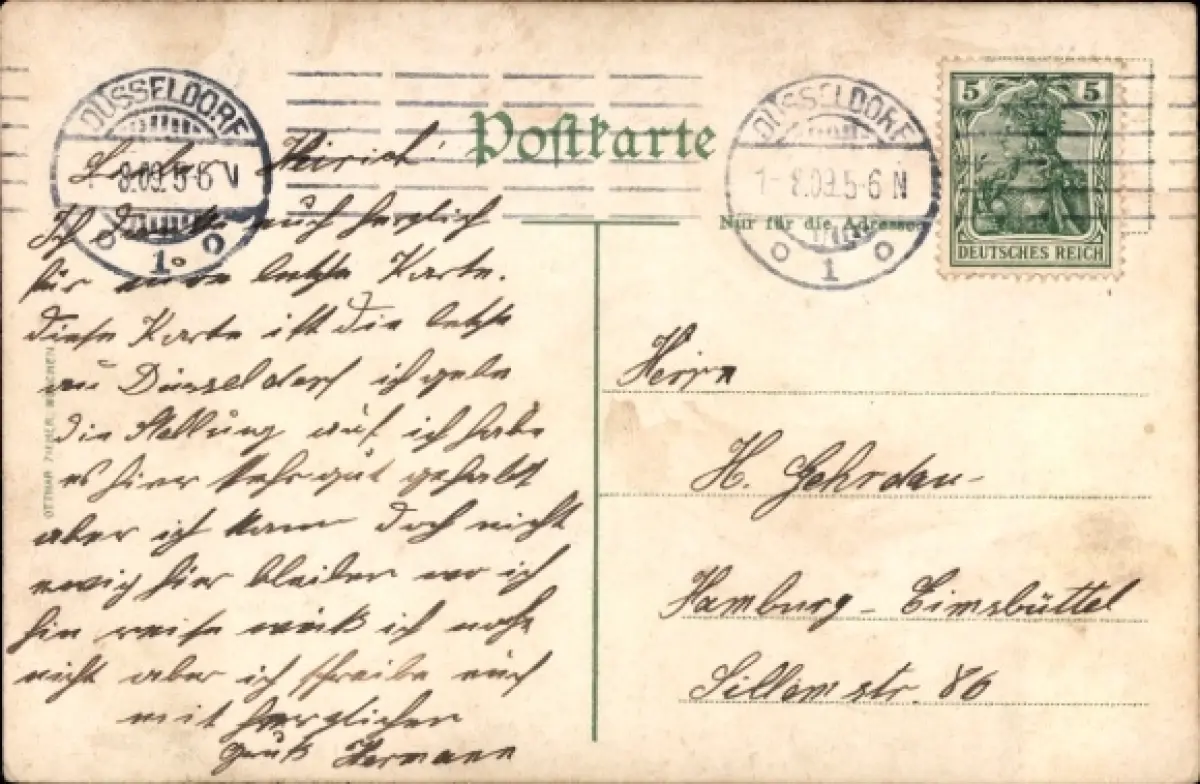 DÜSSELDORF
8.09.5-6 V
1
Postkarte
DÜSSELDORF
1- 8.09.5-6 N
1
5 5
DEUTSCHES REICH
Nur für die Adresse.
Lieber Hinrich!
Ich danke euch herzlich
für eure letzte Karte.
Diese Karte ist die letzte
aus Düsseldorf ich gebe
die Stellung auf, ich habe
es hier sehr gut gehabt
aber ich kann doch nicht
ewig hier bleiben wo ich
hin reise weiß ich noch
nicht aber ich schreibe euch
mit herzlichen
Gruß Hermann
OTTMAR ZIEHER, MÜNCHEN
Herrn
H. Gehrdau-
Hamburg - Eimsbüttel
Sillemstr. 86